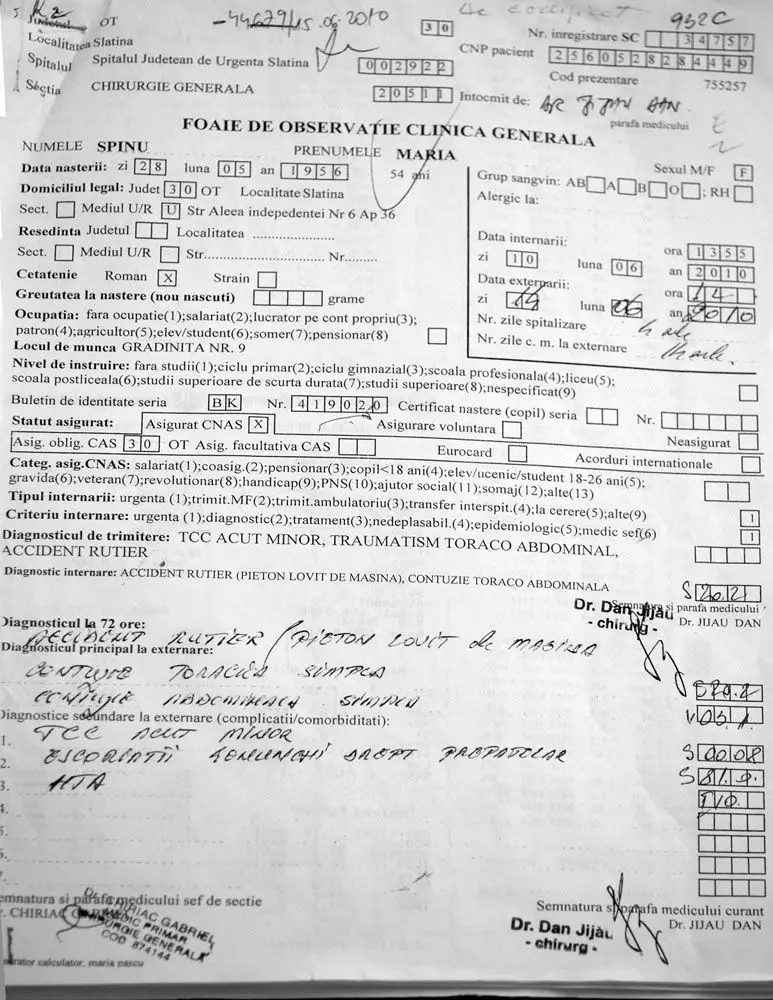 K2
Judetul OT
-44679/15.06.2010
30
De codificat
932C
Localitatea Slatina
Nr. inregistrare SC 34757
Spitalul Spitalul Judetean de Urgenta Slatina 002922
CNP pacient 2560528284449
Cod prezentare 755257
Sectia CHIRURGIE GENERALA 20511
Intocmit de: DR JIJAU DAN
parafa medicului
FOAIE DE OBSERVATIE CLINICA GENERALA
NUMELE SPINU PRENUMELE MARIA
Sexul M/F F
Data nasterii: zi 28 luna 05 an 1956 54 ani
Grup sangvin: AB A B O ; RH
Domiciliul legal: Judet 30 OT Localitate Slatina
Alergic la:
Sect. Mediul U/R U Str Aleea indepedentei Nr 6 Ap 36
Resedinta Judetul Localitatea ....................
Data internarii: ora 1355
Sect. Mediul U/R Str............................ Nr.........
zi 10 luna 06 an 2010
Cetatenie Roman X Strain
Data externarii: ora 14
Greutatea la nastere (nou nascuti) grame
zi 14 luna 06 an 2010
Ocupatia: fara ocupatie(1);salariat(2);lucrator pe cont propriu(3);
patron(4);agricultor(5);elev/student(6);somer(7);pensionar(8)
Nr. zile spitalizare
Locul de munca GRADINITA NR. 9
Nr. zile c. m. la externare
Nivel de instruire: fara studii(1);ciclu primar(2);ciclu gimnazial(3);scoala profesionala(4);liceu(5);
scoala postliceala(6);studii superioare de scurta durata(7);studii superioare(8);nespecificat(9)
Buletin de identitate seria BK Nr. 419020 Certificat nastere (copil) seria Nr.
Statut asigurat: Asigurat CNAS X Asigurare voluntara Neasigurat
Asig. oblig. CAS 30 OT Asig. facultativa CAS Eurocard Acorduri internationale
Categ. asig.CNAS: salariat(1);coasig.(2);pensionar(3);copil<18 ani(4);elev/ucenic/student 18-26 ani(5);
gravida(6);veteran(7);revolutionar(8);handicap(9);PNS(10);ajutor social(11);somaj(12);alte(13)
Tipul internarii: urgenta (1);trimit.MF(2);trimit.ambulatoriu(3);transfer interspit.(4);la cerere(5);alte(9) 1
Criteriu internare: urgenta (1);diagnostic(2);tratament(3);nedeplasabil.(4);epidemiologic(5);medic sef(6) 1
Diagnosticul de trimitere: TCC ACUT MINOR, TRAUMATISM TORACO ABDOMINAL,
ACCIDENT RUTIER
Diagnostic internare: ACCIDENT RUTIER (PIETON LOVIT DE MASINA), CONTUZIE TORACO ABDOMINALA S20.2
Semnatura si parafa medicului
Dr. Dan Jijau
- chirurg -
Dr. JIJAU DAN
Diagnosticul la 72 ore:
ACCIDENT RUTIER (PIETON LOVIT de MASINA
Diagnosticul principal la externare:
CONTUZIE TORACICA SIMPLA
CONTUZIE ABDOMINALA SIMPLA
Diagnostice secundare la externare (complicatii/comorbiditati):
V03.1
1. TCC ACUT MINOR S00.08
2. ESCORIATII GENUNCHI DREPT PREPATELAR S81.9.
3. HTA I10.
4.
5.
6.
7.
Semnatura si parafa medicului sef de sectie
Semnatura si parafa medicului curant
Dr. CHIRIAC
Dr. CHIRIAC GABRIEL
MEDIC PRIMAR
CHIRURGIE GENERALA
COD 874144
Dr. JIJAU DAN
Dr. Dan Jijau
- chirurg -
operator calculator: maria pascu